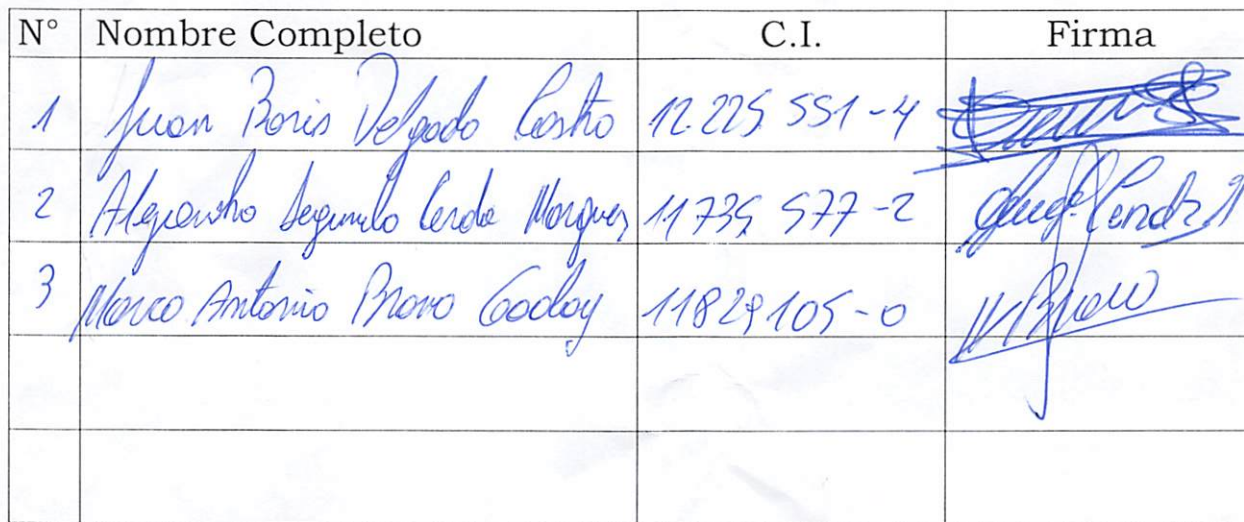 N° Nombre Completo C.I. Firma
1 Juan Boris Delgado Castro 12.225 551-4
2 Alejandro Segundo Cerda Marquez 11735 577-2
3 Marco Antonio Bravo Godoy 11829105-0 Bravo